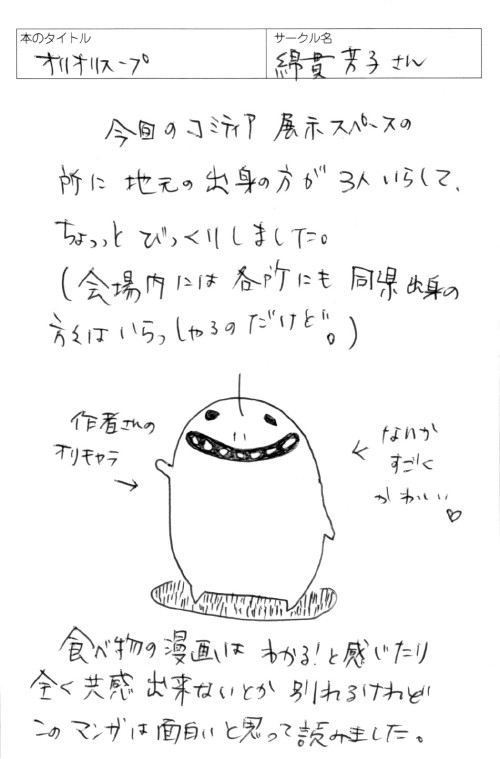 本のタイトル
オリオリスープ
サークル名
綿貫芳子さん
今回のコミティア 展示スペースの
所に 地元の出身の方が 3人いらして、
ちょっっと びっくりしました。
(会場内には各所にも 同県出身の
方々はいらっしゃるのだけど。)
作者さんの
オリキャラ
→
←
なんか
すごく
かわいい♡
食べ物の漫画は わかる!と感じたり
全く共感出来ないとか 別れるけれど
このマンガは面白いと思って読みました。